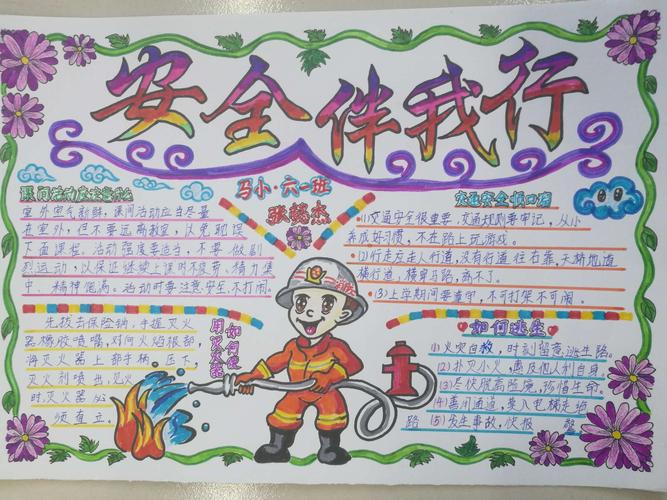 安全伴我行
课间活动应注意什么
室外空气新鲜,课间活动应当尽量
在室外,但不要远离教室,以免耽误
下面课程。活动强度要适当,不要做剧
烈运动,以保证继续上课时不疲劳,精力集
中、精神饱满。活动时要注意安全,不打闹。
马小·六一班
张懿杰
交通安全顺口溜
(1)交通安全很重要,交通规则要牢记,从小
养成好习惯,不在路上玩游戏。
(2)行走应走人行道,没有行道往右靠,天桥地道
横行道,横穿马路离不了。
(3)上学期间要查甲,不可打架不可闹。
如何使
用灭火器
先拔去保险销,手握灭火
器橡胶喷嘴,对向火焰根部,
将灭火器上部手柄压下,
灭火剂喷出,灭火
时,灭火器必
须直立。
如何逃生
(1)火灾自救,时刻留意逃生路。
(2)扑灭小火,惠及他人利自身。
(3)尽快脱离险境,珍惜生命。
(4)善用通道,莫入电梯走绝
路 (5)发生事故,快报警